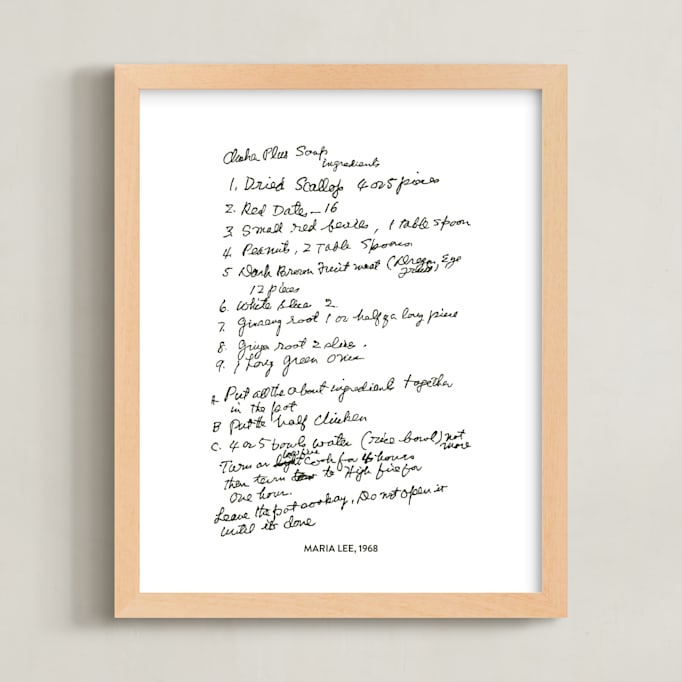 Aloha Plus Soup
Ingredients
1. Dried Scallop 4 or 5 pieces
2. Red Date — 16
3. Small red berries, 1 table spoon
4. Peanuts, 2 Table Spoons
5 Dark Brown Fruit meat (Dragon Eye
fruit)
12 pieces
6. White 2
7. Ginseng root 1 or half of a long piece
8. Ginger root 2 slice.
9. 1 Long green onion
A Put all the about ingredients together
in the pot
B Put the half chicken
C. 4 or 5 bowls water (rice bowl) not
more
Turn on low fire Cook for 4 hours
then turn to High fire for
one hour.
Leave the pot , Do not open it
until it's done
MARIA LEE, 1968